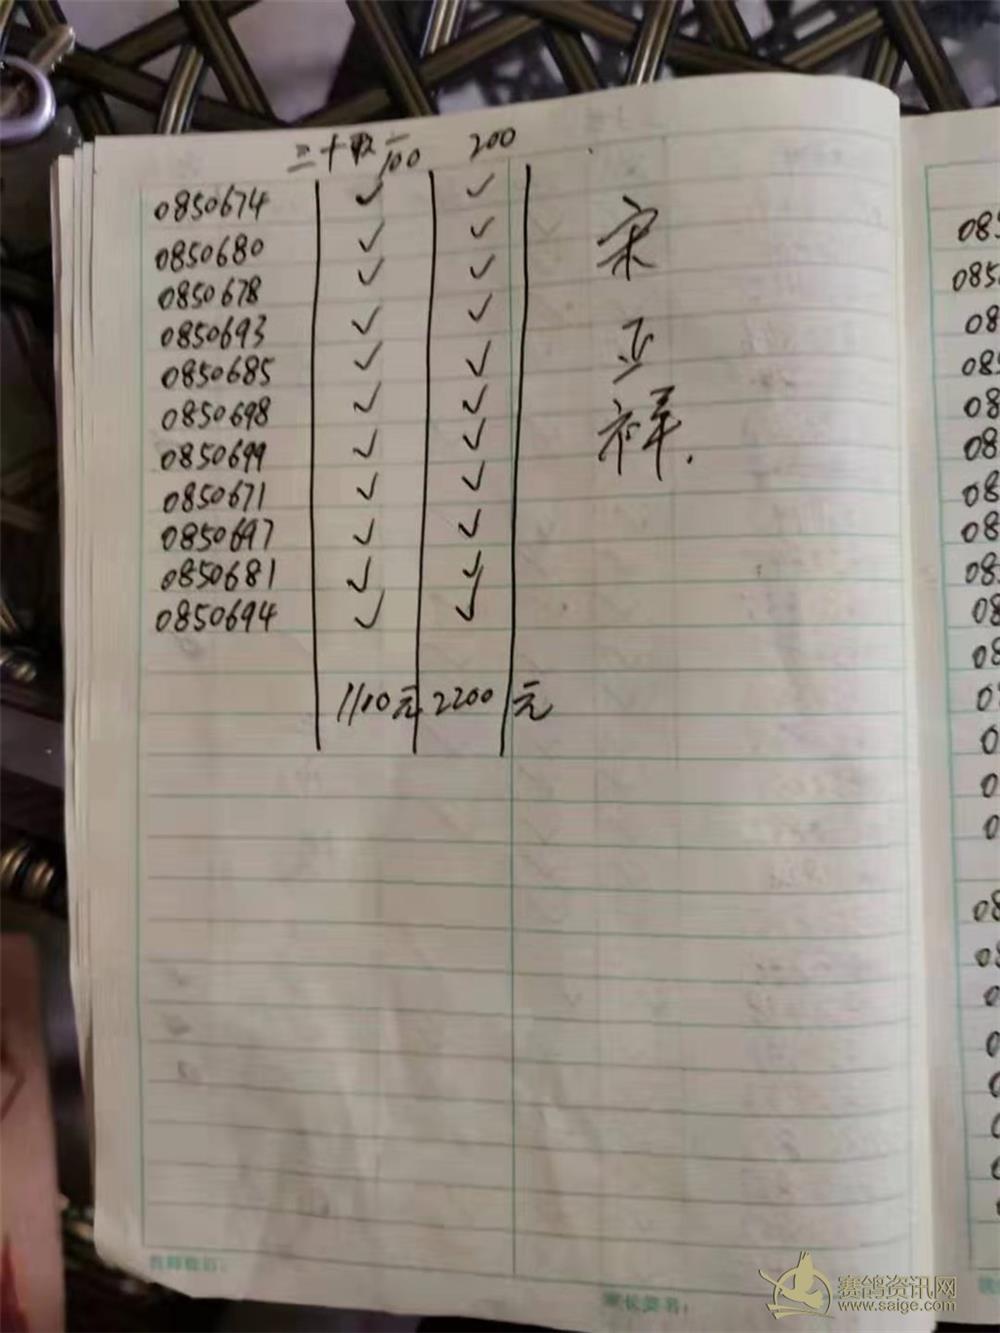 二十收一100 200
0850674 ✓ ✓
0850680 ✓ ✓
0850678 ✓ ✓
0850693 ✓ ✓
0850685 ✓ ✓
0850698 ✓ ✓
0850699 ✓ ✓
0850671 ✓ ✓
0850697 ✓ ✓
0850681 ✓ ✓
0850694 ✓ ✓
1100元 2200元
宋亚祥.
085
085
08
085
08
08
08
08
08
08
08
0
0
0
0
08
08
0
0
0
0
0
家长签名:
赛鸽资讯网
www.saige.com